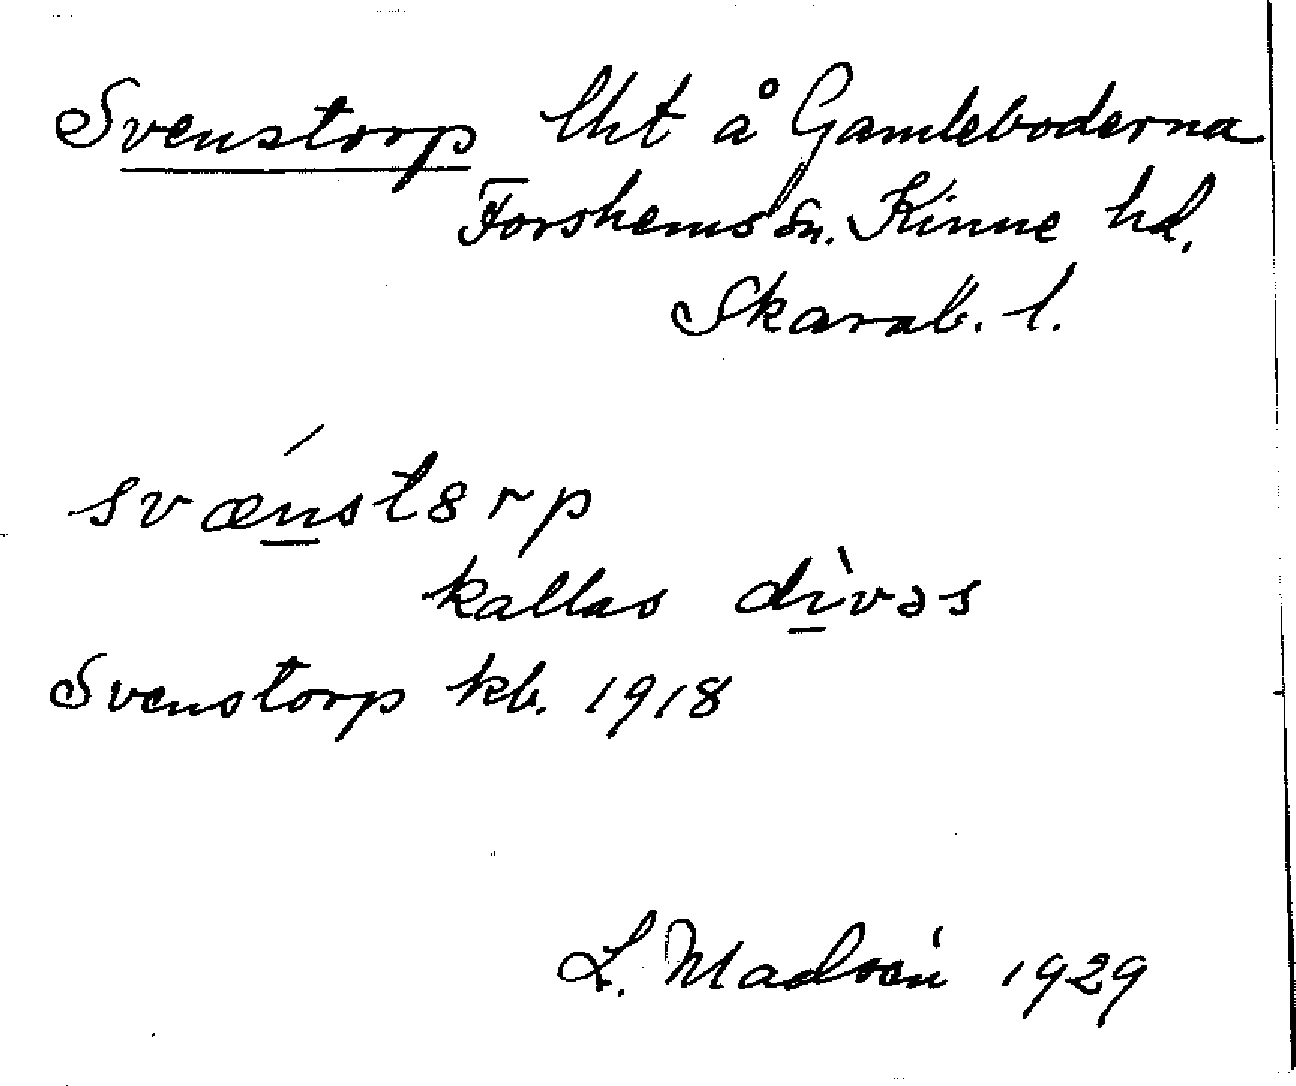 Svenstorp lht å Gamleboderna
Forshems sn. Kinne hd.
Skarab. l.
svǽnst8rp
kallas dìvəs
Svenstorp kb. 1918
L. 1929